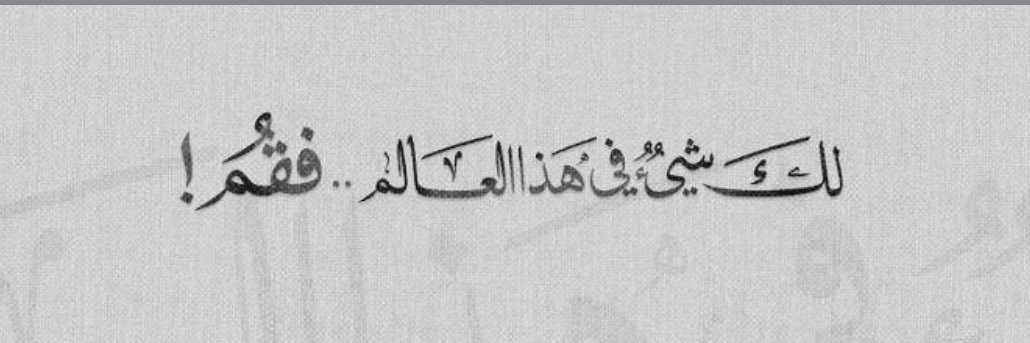 لكَ شيءٌ في هَذا العالم .. فقُمْ !